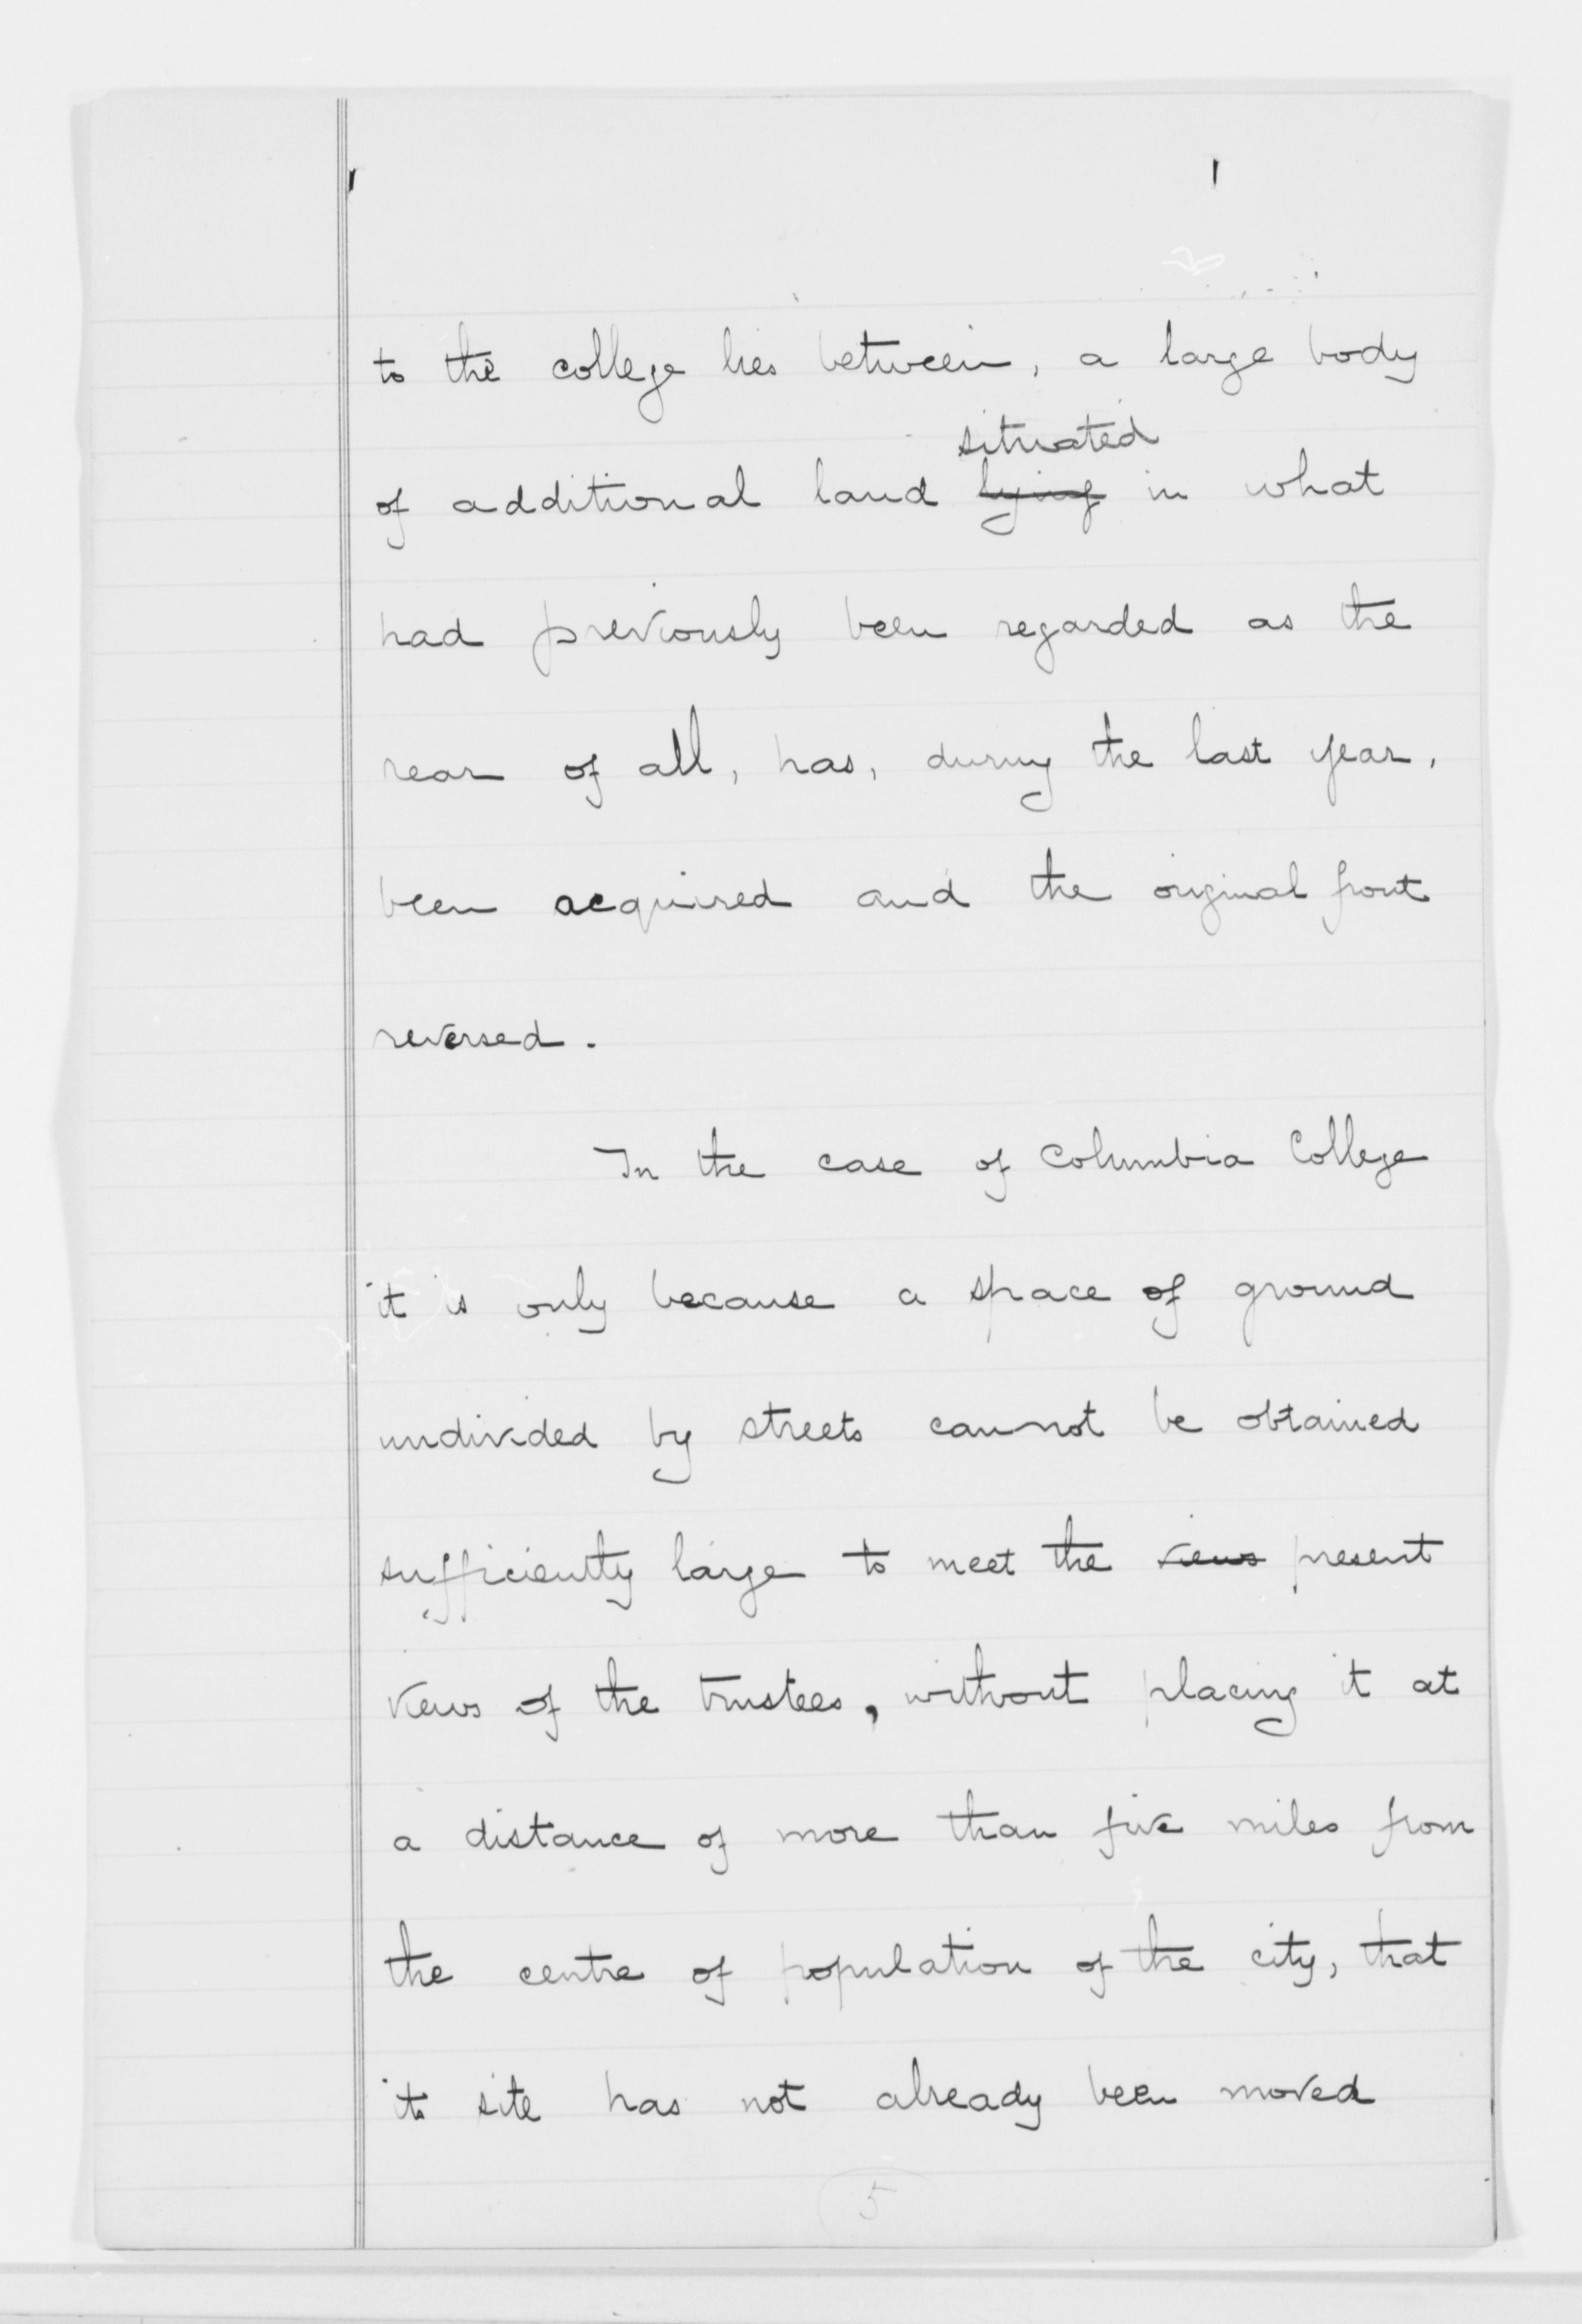 to the college lies between, a large body
situated
of additional land lying in what
had previously been regarded as the
rear of all, has, during the last year,
been acquired and the original front
reversed.
In the case of Columbia College
it is only because a space of ground
undivided by streets cannot be obtained
sufficiently large to meet the views present
views of the trustees, without placing it at
a distance of more than five miles from
the centre of population of the city, that
its site has not already been moved
5